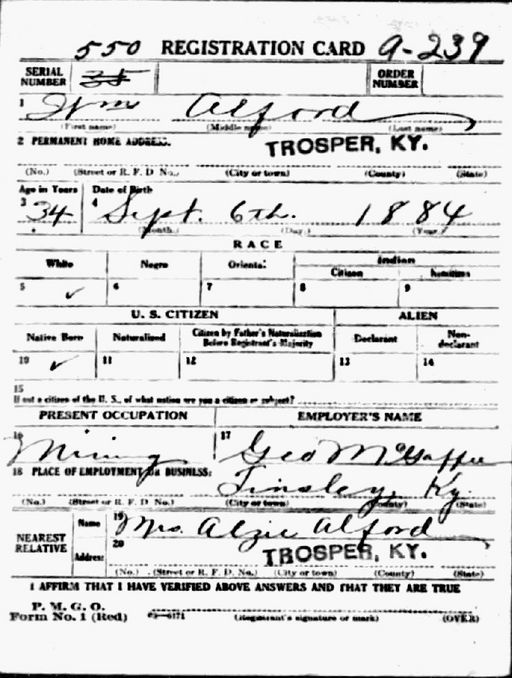 550 REGISTRATION CARD A-239
SERIAL NUMBER ORDER NUMBER
1 Wm Alford
(First name) (Middle name) (Last name)
2 PERMANENT HOME ADDRESS. TROSPER, KY.
(No.) (Street or R. F. D No.) (City or town) (County) (State)
Age in Years Date of Birth
3 34 4 Sept. 6th. 1884
(Month.) (Day.) (Year.)
RACE
White Negro Oriental Indian
Citizen
5 ✓ 6 7 8 9
U. S. CITIZEN ALIEN
Native Born Naturalized Citizen by Father's Naturalization Before Registrant's Majority Declarant Non-declarant
10 ✓ 11 12 13 14
15
If not a citizen of the U. S., of what nation are you a citizen or subject?
PRESENT OCCUPATION EMPLOYER'S NAME
16 Mining 17 Geo
18 PLACE OF EMPLOYMENT OR BUSINESS: Tinsley, Ky
(No.) (Street or R. F. D. No.) (City or town) (County) (State)
NEAREST RELATIVE Name 19 Mrs. Alzie Alford
Address 20 TROSPER, KY.
(No.) (Street or R. F. D. No.) (City or town) (County) (State)
I AFFIRM THAT I HAVE VERIFIED ABOVE ANSWERS AND THAT THEY ARE TRUE
P. M. G. O.
Form No. 1 (Red) 03—6171 (Registrant's signature or mark) (OVER)